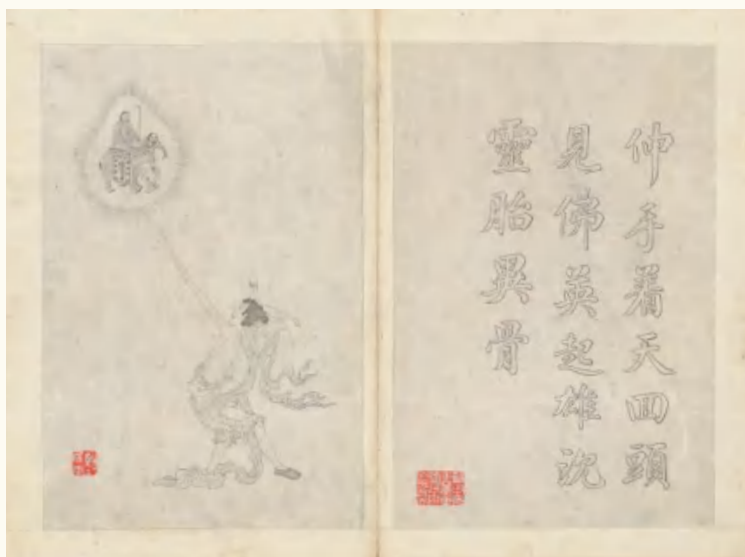 伸手着天回頭
見佛英起雄沈
靈胎異骨